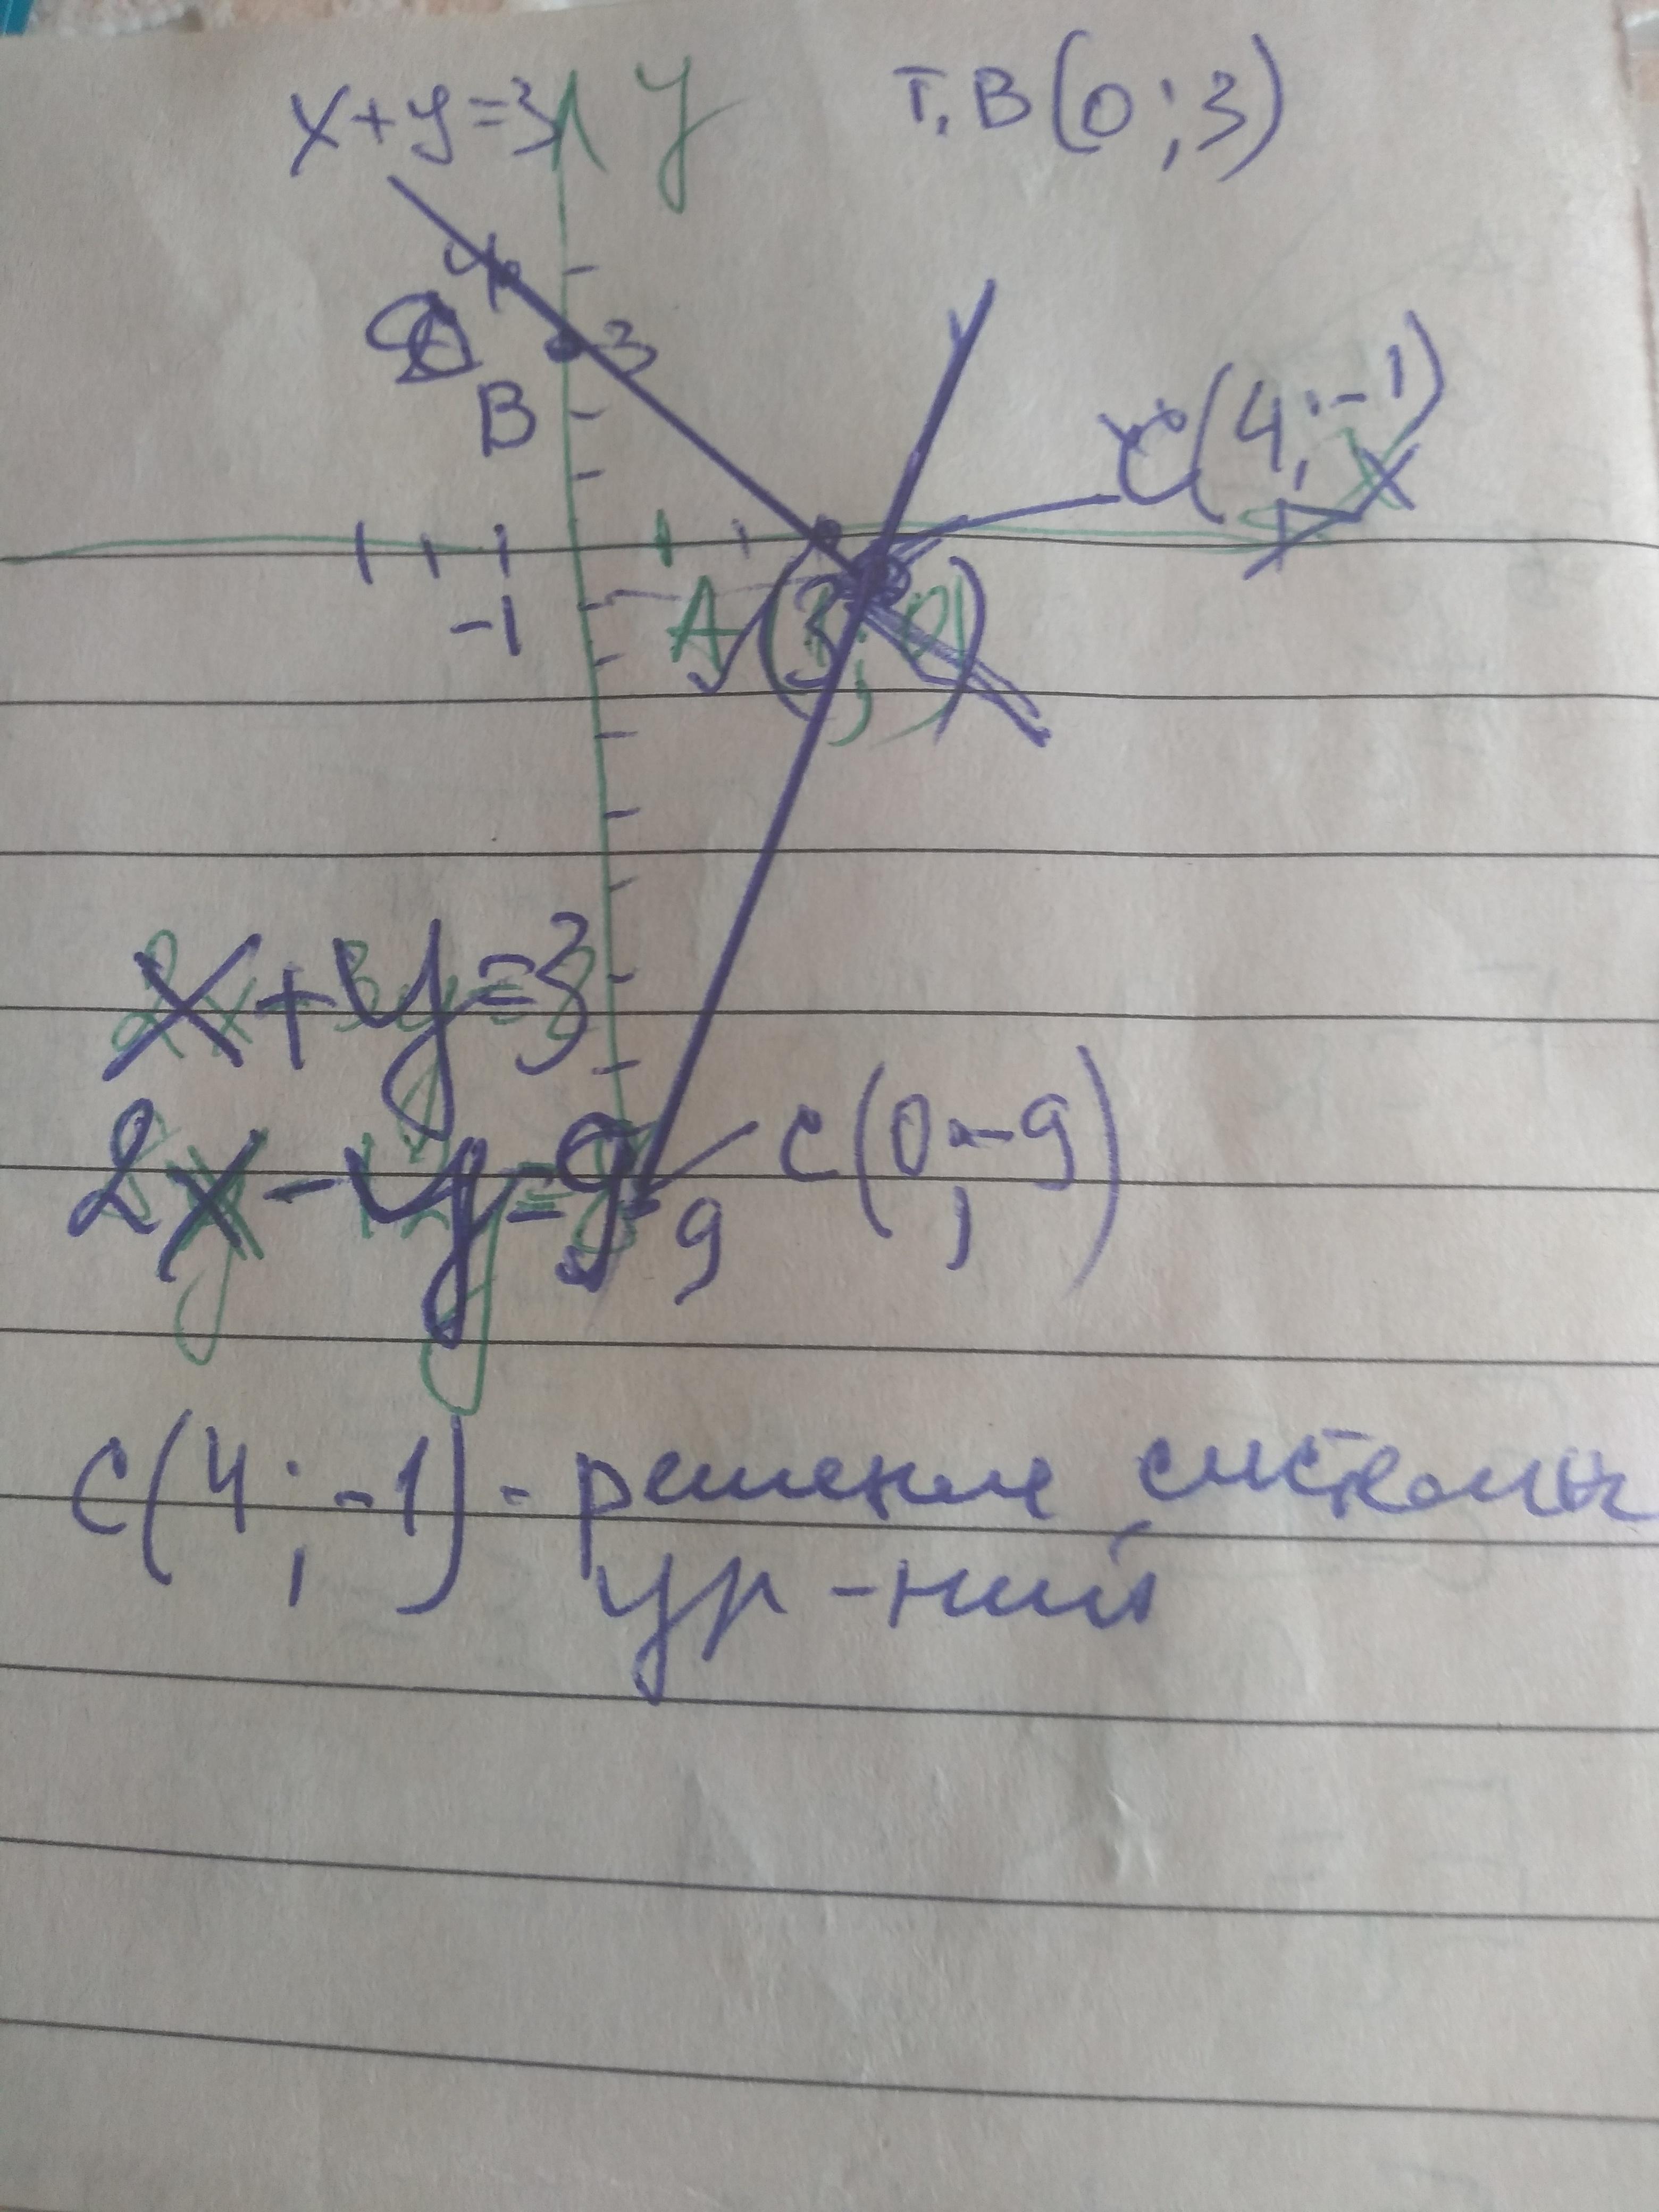 x+y=3 y т. B(0;3)
4
3
B
C(4;-1)
x
-1
A(3;0)
x+y=3
2x-y=9
C(0;-9)
9
C(4;-1) - решение системы
ур-ний